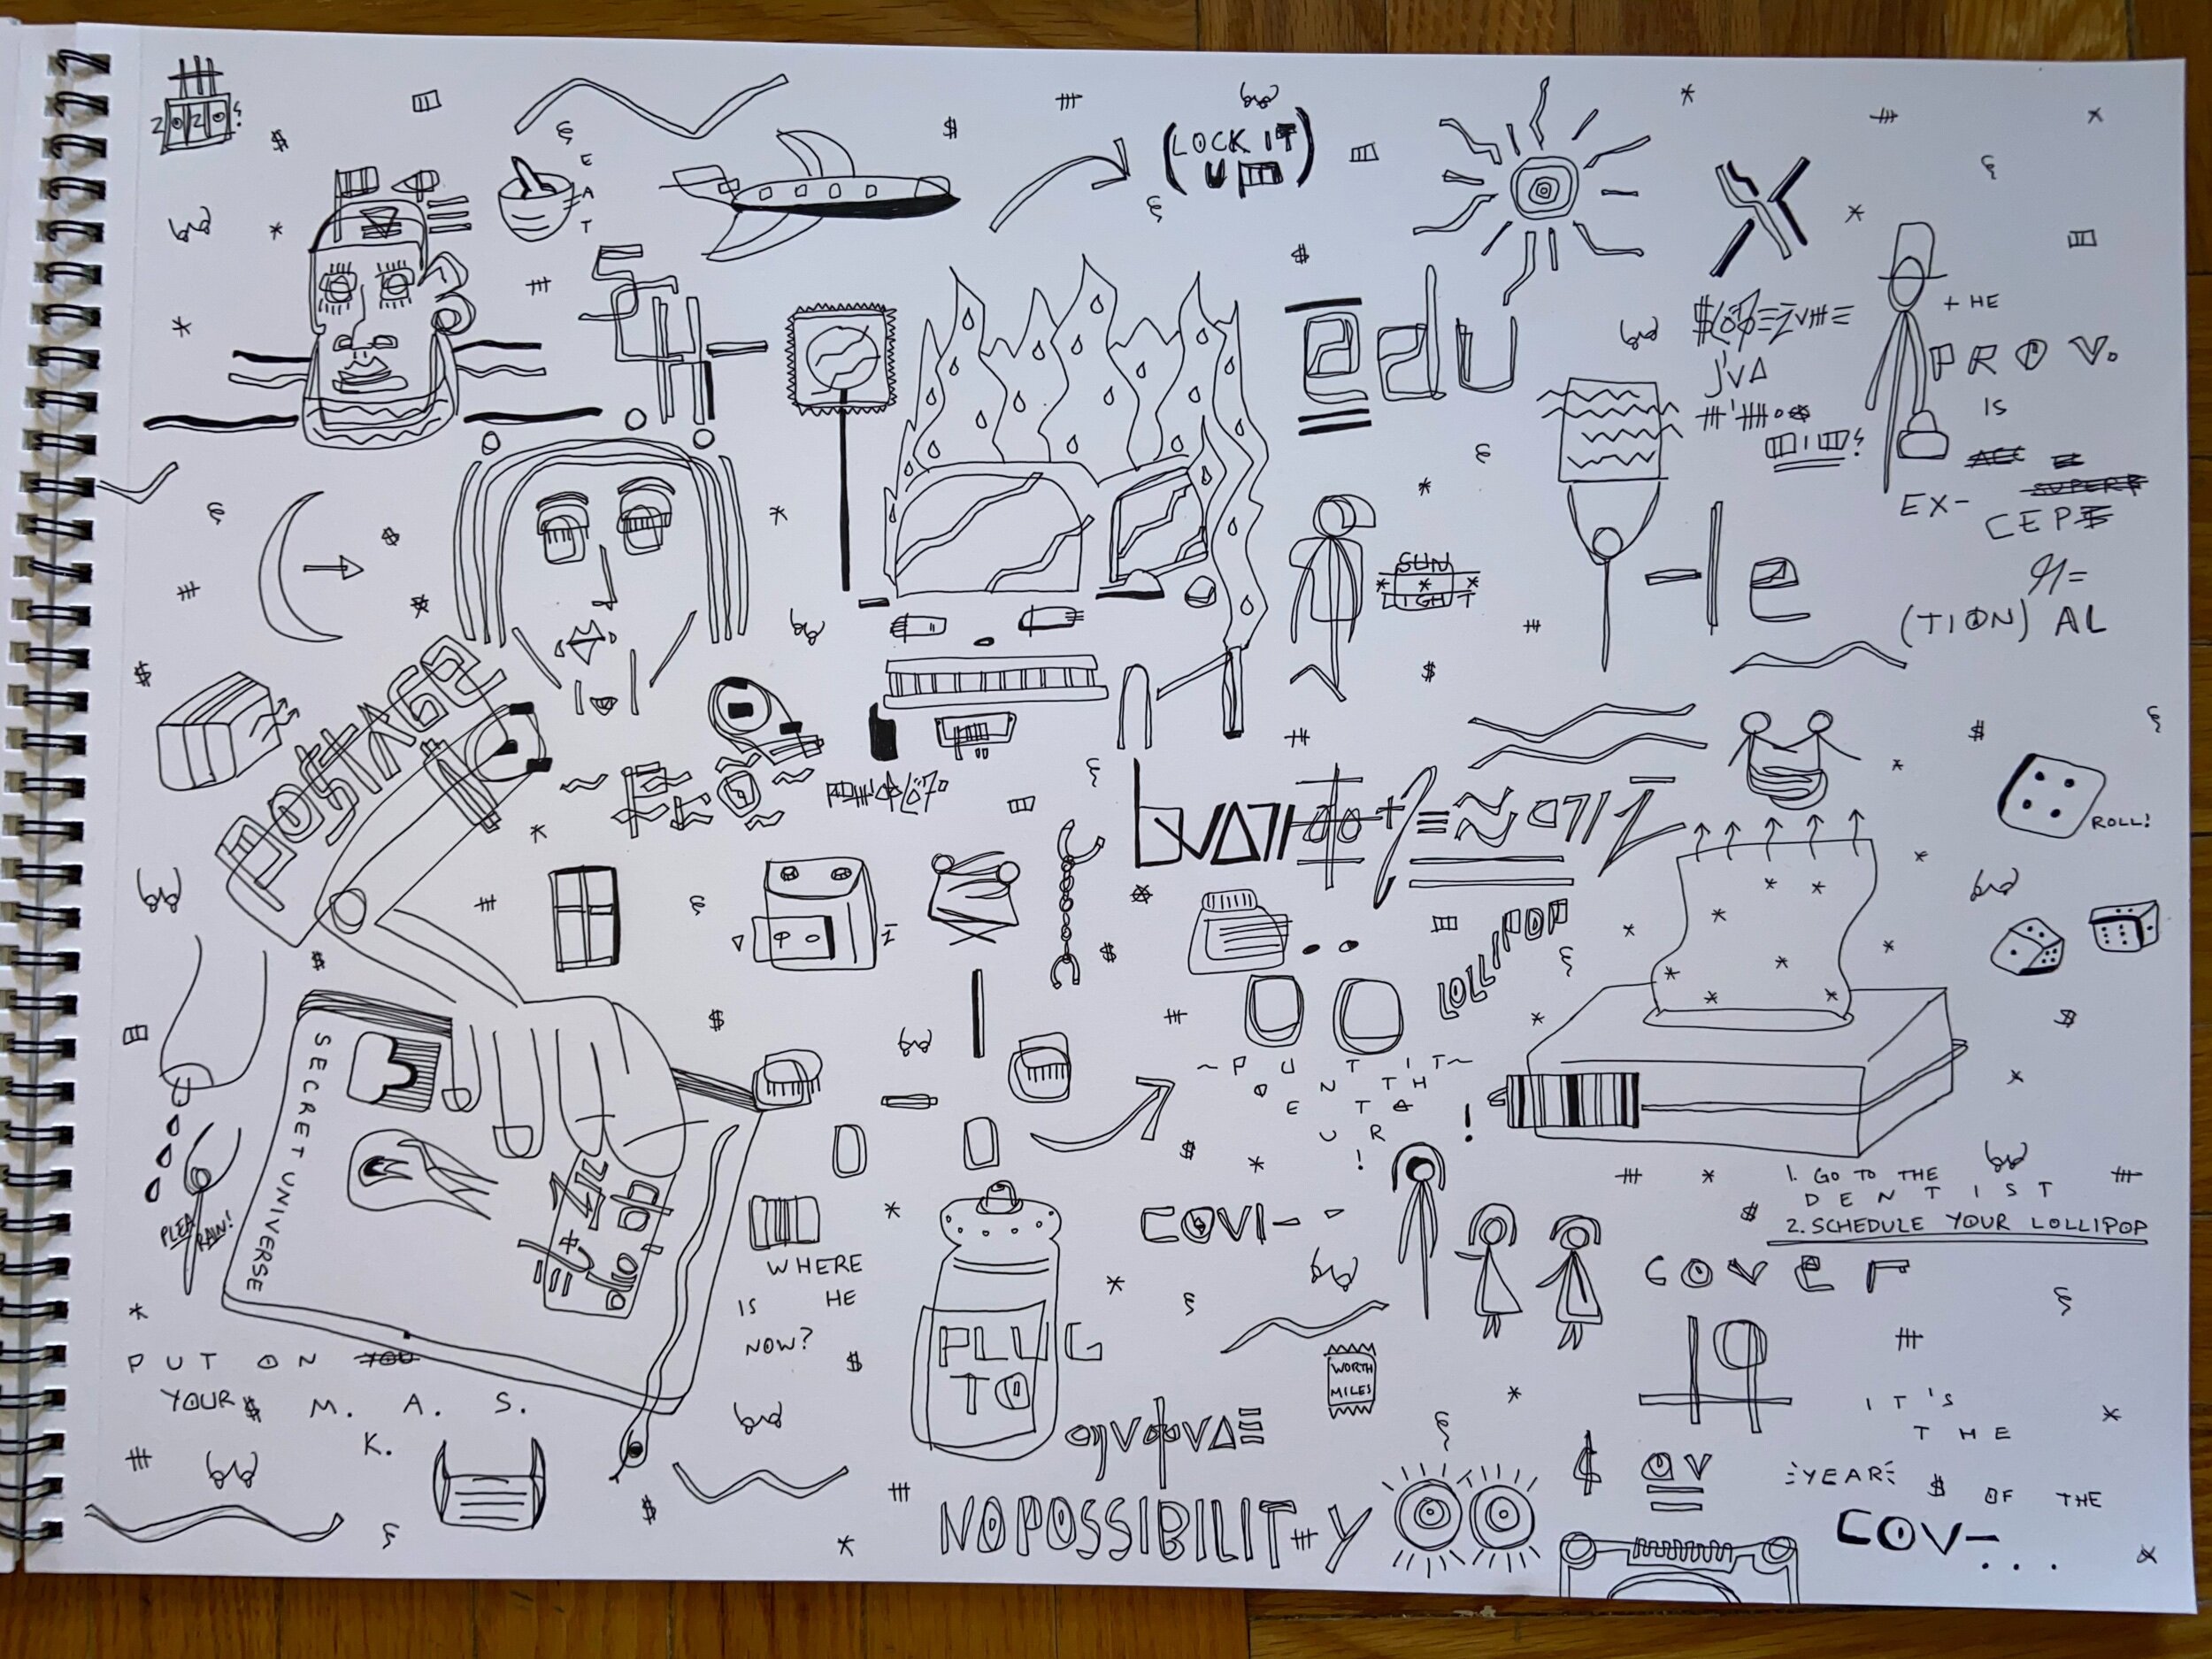 2 2
EAT
(LOCK IT
UP)
edu
+HE
PROV.
IS
EX-
CEP
(TION) AL
SUN
LIGHT
-le
POSTAGE
ROLL!
LOLLIPOP
~PUT IT~
ON TH
E TA
UR
!
SECRET UNIVERSE
PLEA
RAIN!
1. GO TO THE
DENTIST
2. SCHEDULE YOUR LOLLIPOP
COVI-
COVER
19
WHERE
IS HE
NOW?
PLUG
TO
WORTH
MILES
PUT ON YOU
YOUR $ M. A. S.
K.
IT'S
THE
YEAR $ OF THE
COV-...
NOPOSSIBILIT Y